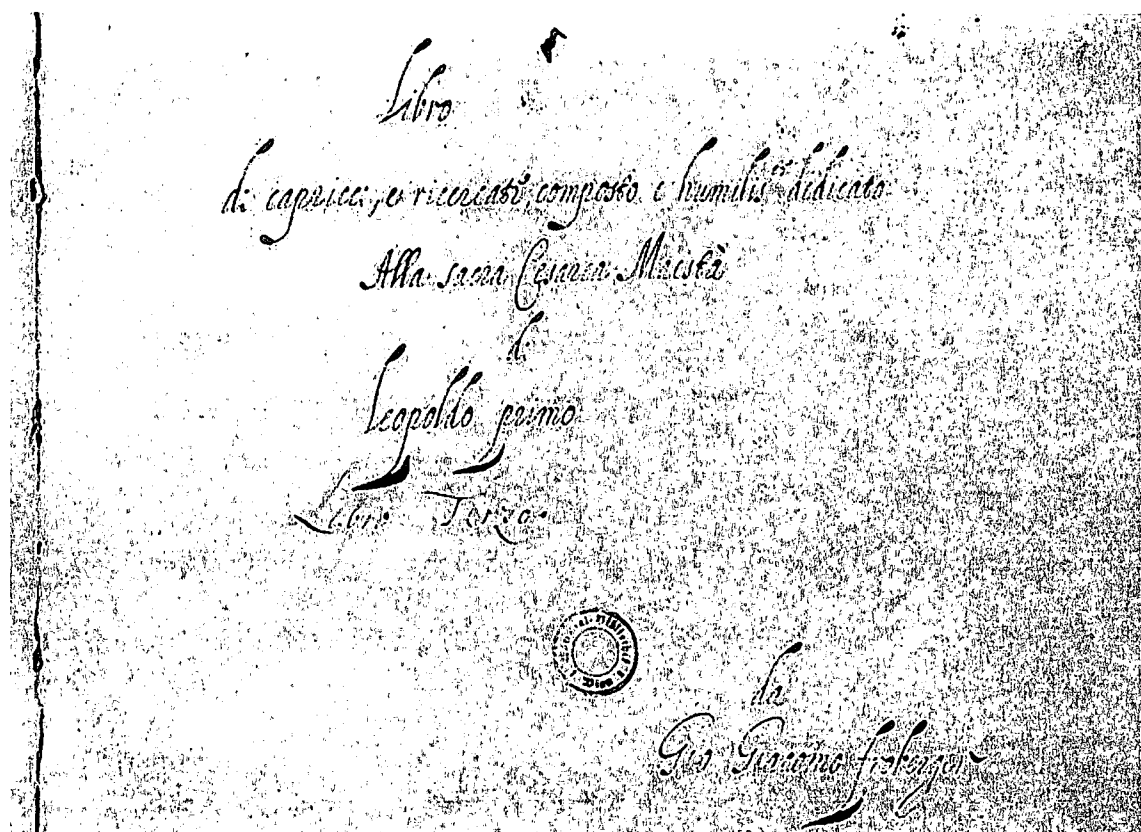 Libro
di capricci, e ricercati, composto e humilis.te dedicato
Alla sacra Cesarea Maestà
di
Leopoldo primo
Libro Terzo.
da
Gio Giacomo froberger